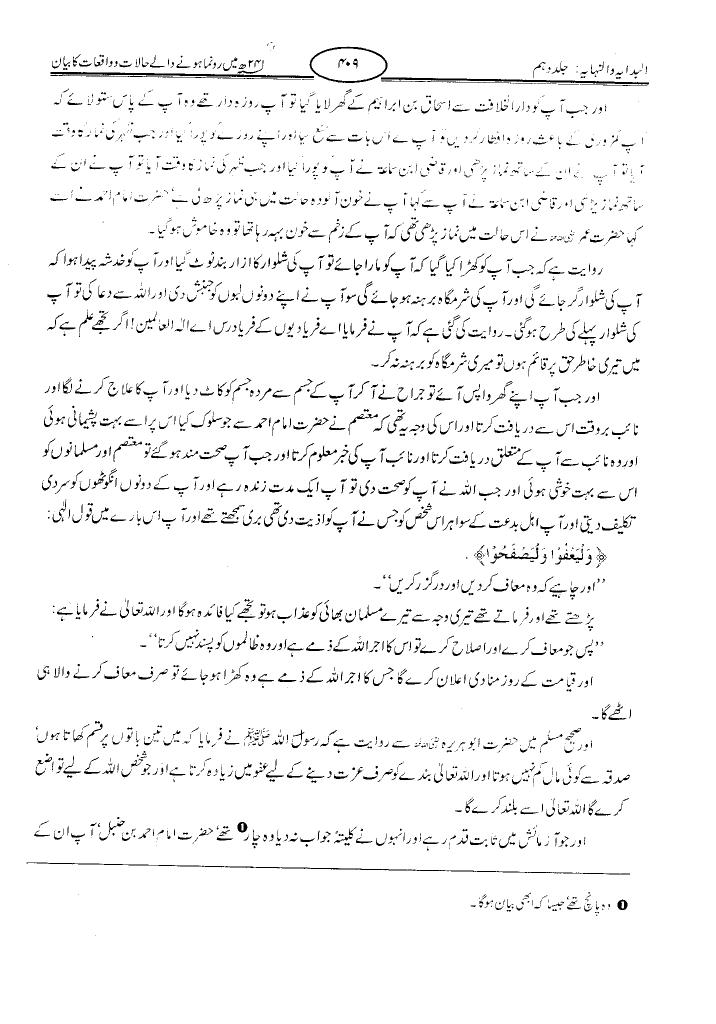 البدایہ والنہایہ: جلد دہم
۴۰۹
۲۴۱ھ میں رونما ہونے والے حالات و واقعات کا بیان
اور جب آپ کو دار الخلافت سے اسحاق بن ابراہیم کے گھر لایا گیا تو آپ روزہ دار تھے وہ آپ کے پاس ستو لائے کہ
آپ کمزوری کے باعث روزہ افطار کر دیں تو آپ نے اس بات سے منع کیا اور اپنے روزے کو پورا کیا اور جب ظہر کی نماز کا وقت
آیا تو آپ نے ان کے ساتھ نماز پڑھی اور قاضی ابن سماعۃ نے آپ کو پورا کیا اور جب ظہر کی نماز کا وقت آیا تو آپ نے ان کے
ساتھ نماز پڑھی اور قاضی ابن سماعۃ نے آپ سے کہا آپ نے خون آلودہ حالت میں ہی نماز پڑھ لی ہے، حضرت امام احمد نے اسے
کہا حضرت عمر رضی اللہ عنہ نے اس حالت میں نماز پڑھی تھی کہ آپ کے زخم سے خون بہہ رہا تھا تو وہ خاموش ہو گیا۔
روایت ہے کہ جب آپ کو کھڑا کیا گیا کہ آپ کو مارا جائے تو آپ کی شلوار کا ازار بند ٹوٹ گیا اور آپ کو خدشہ پیدا ہوا کہ
آپ کی شلوار گر جائے گی اور آپ کی شرمگاہ برہنہ ہو جائے گی سو آپ نے اپنے دونوں لبوں کو جنبش دی اور اللہ سے دعا کی تو آپ
کی شلوار پہلے کی طرح ہو گئی۔ روایت کی گئی ہے کہ آپ نے فرمایا اے فریادیوں کے فریاد رس اے الٰہ العالمین! اگر تجھے علم ہے کہ
میں تیری خاطر حق پر قائم ہوں تو میری شرمگاہ کو برہنہ نہ کر۔
اور جب آپ اپنے گھر واپس آئے تو جراح نے آ کر آپ کے جسم سے مردہ جسم کو کاٹ دیا اور آپ کا علاج کرنے لگا اور
نائب ہر وقت اس سے دریافت کرتا اور اس کی وجہ یہ تھی کہ معتصم نے حضرت امام احمد سے جو سلوک کیا اس پر اسے بہت پشیمانی ہوئی
اور وہ نائب سے آپ کے متعلق دریافت کرتا اور نائب آپ کی خبر معلوم کرتا اور جب آپ صحت مند ہو گئے تو معتصم اور مسلمانوں کو
اس سے بہت خوشی ہوئی اور جب اللہ نے آپ کو صحت دی تو آپ ایک مدت زندہ رہے اور آپ کے دونوں انگوٹھوں کو سردی
تکلیف دیتی اور آپ اہل بدعت کے سوا ہر اس شخص کو جس نے آپ کو اذیت دی تھی بری سمجھتے تھے اور آپ اس بارے میں قول الٰہی:
﴿ وَلْیَعْفُوْا وَلْیَصْفَحُوْا ﴾ .
”اور چاہیے کہ وہ معاف کردیں اور درگزر کریں“۔
پڑھتے تھے اور فرماتے تھے تیری وجہ سے تیرے مسلمان بھائی کو عذاب ہو تو تجھے کیا فائدہ ہوگا اور اللہ تعالیٰ نے فرمایا ہے:
”پس جو معاف کرے اور اصلاح کرے تو اس کا اجر اللہ کے ذمے ہے اور وہ ظالموں کو پسند نہیں کرتا“۔
اور قیامت کے روز منادی اعلان کرے گا جس کا اجر اللہ کے ذمے ہے وہ کھڑا ہو جائے تو صرف معاف کرنے والا ہی
اٹھے گا۔
اور صحیح مسلم میں حضرت ابو ہریرہ رضی اللہ عنہ سے روایت ہے کہ رسول اللہ ﷺ نے فرمایا کہ میں تین باتوں پر قسم کھاتا ہوں،
صدقہ سے کوئی مال کم نہیں ہوتا اور اللہ تعالیٰ بندے کو صرف عزت دینے کے لیے عفو میں زیادہ کرتا ہے اور جو شخص اللہ کے لیے تواضع
کرے گا اللہ تعالیٰ اسے بلند کرے گا۔
اور جو آزمائش میں ثابت قدم رہے اور انہوں نے کلیتۂ جواب نہ دیا وہ چار❶ تھے، حضرت امام احمد بن حنبل، آپ ان کے
❶ وہ پانچ تھے، جیسا کہ ابھی بیان ہوگا۔